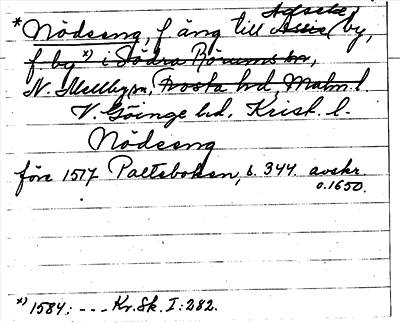 *Nödseng, f äng till Assie by,
f by x) i Södra Rörums sn,
N. Mellby sn, Frosta hd, Malm. l.
V. Göinge hd, Krist. l.
Nödseng
före 1517 Palteboken, s. 344. avskr.
o. 1650.
x) 1584: --- Kr. Sk. I: 282.